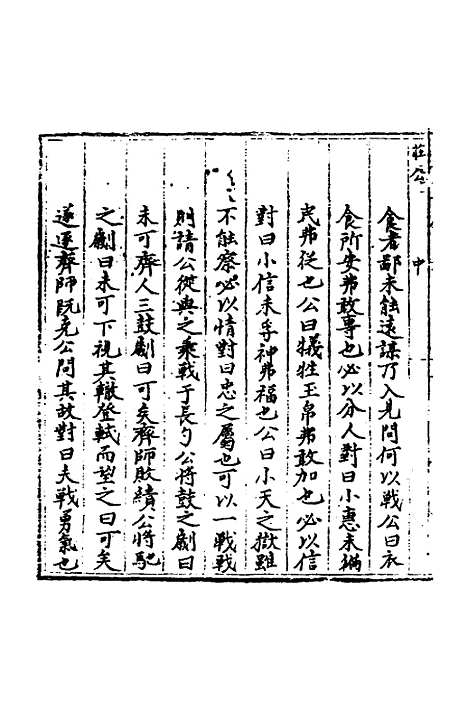 莊公
中
食者鄙未能遠謀乃入見問何以戰公曰衣
食所安弗敢專也必以分人對曰小惠未徧
民弗從也公曰犧牲玉帛弗敢加也必以信
對曰小信未孚神弗福也公曰小大之獄雖
不能察必以情對曰忠之屬也可以一戰戰
則請公從與之乘戰于長勺公將鼓之劌曰
未可齊人三鼓劌曰可矣齊師敗績公將馳
之劌曰未可下視其轍登軾而望之曰可矣
遂逐齊師既克公問其故對曰夫戰勇氣也